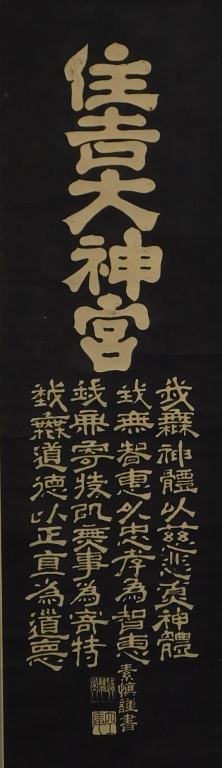 住吉大神宮
我無神體以慈悲為神體
我無智恵以忠孝為智恵
我無寄特以無事為寄特
我無道徳以正直為道徳
素慎謹書